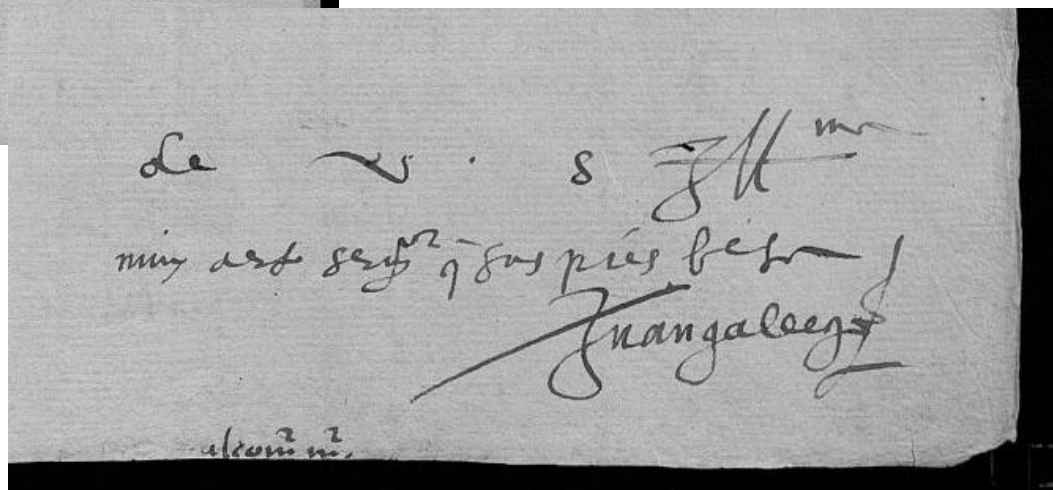 de v. s. Ill^ma
muy cierto ser^or q̃ sus pies besa
Juan gallego
al com^or m^or.